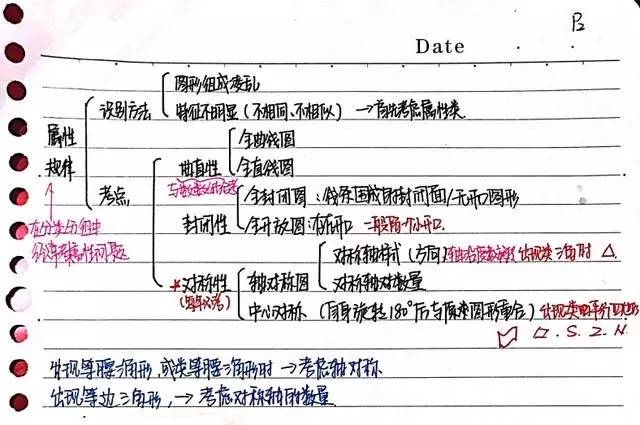 P2
Date
图形组成凌乱
识别方法
特征不明显(不相同、不相似) →首先考虑属性类
属性规律
全曲线图
曲直性
全直线图
考点
全封闭图:线条围成的封闭面/无开口图形
封闭性
全开放图:有开口 一般留一个小开口.
在分类分组中
对称轴样式(方向) 出现类三角时 △.
*对称性
轴对称图
对称轴对数量
中心对称(自身旋转180°后与原来图形重合) 出现类平行四边形
▱.S.Z.N.
出现等腰三角形,或类等腰三角形时→考虑轴对称
出现等边三角形,→考虑对称轴的数量